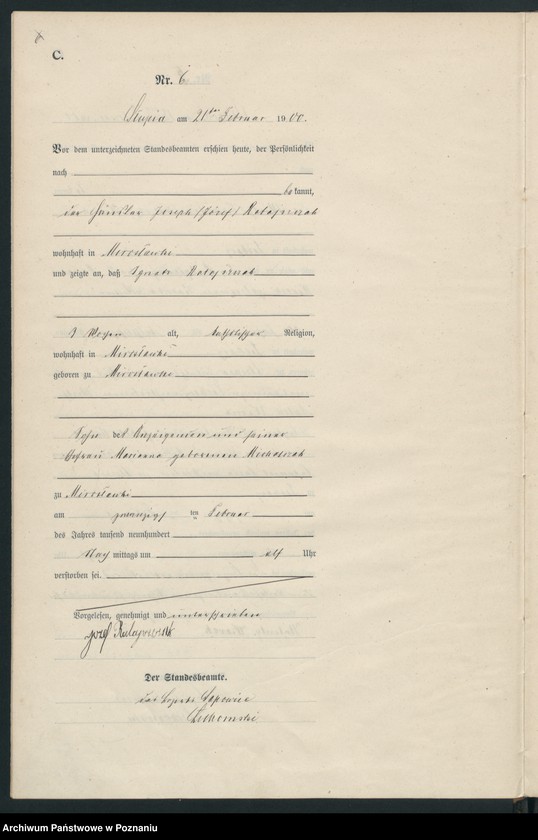 C.
Nr. 6
am 21ten Februar 1900.
Vor dem unterzeichneten Standesbeamten erschien heute, der Persönlichkeit
nach
bekannt,
der Häusler Joseph /Józef/ Ratajczak
wohnhaft in Mirosławki
und zeigte an, daß Ignatz Ratajczak
3 Wochen alt, katholischer Religion,
wohnhaft in Mirosławki
geboren zu Mirosławki
Sohn des Anzeigenden und seiner
Ehefrau Marianna geborenen Michalczak
zu Mirosławki
am zwanzigsten Februar
des Jahres tausend neunhundert
Nachmittags um elf Uhr
verstorben sei.
Vorgelesen, genehmigt und unterschrieben
Józef Ratajczak
Der Standesbeamte.
Archiwum Państwowe w Poznaniu